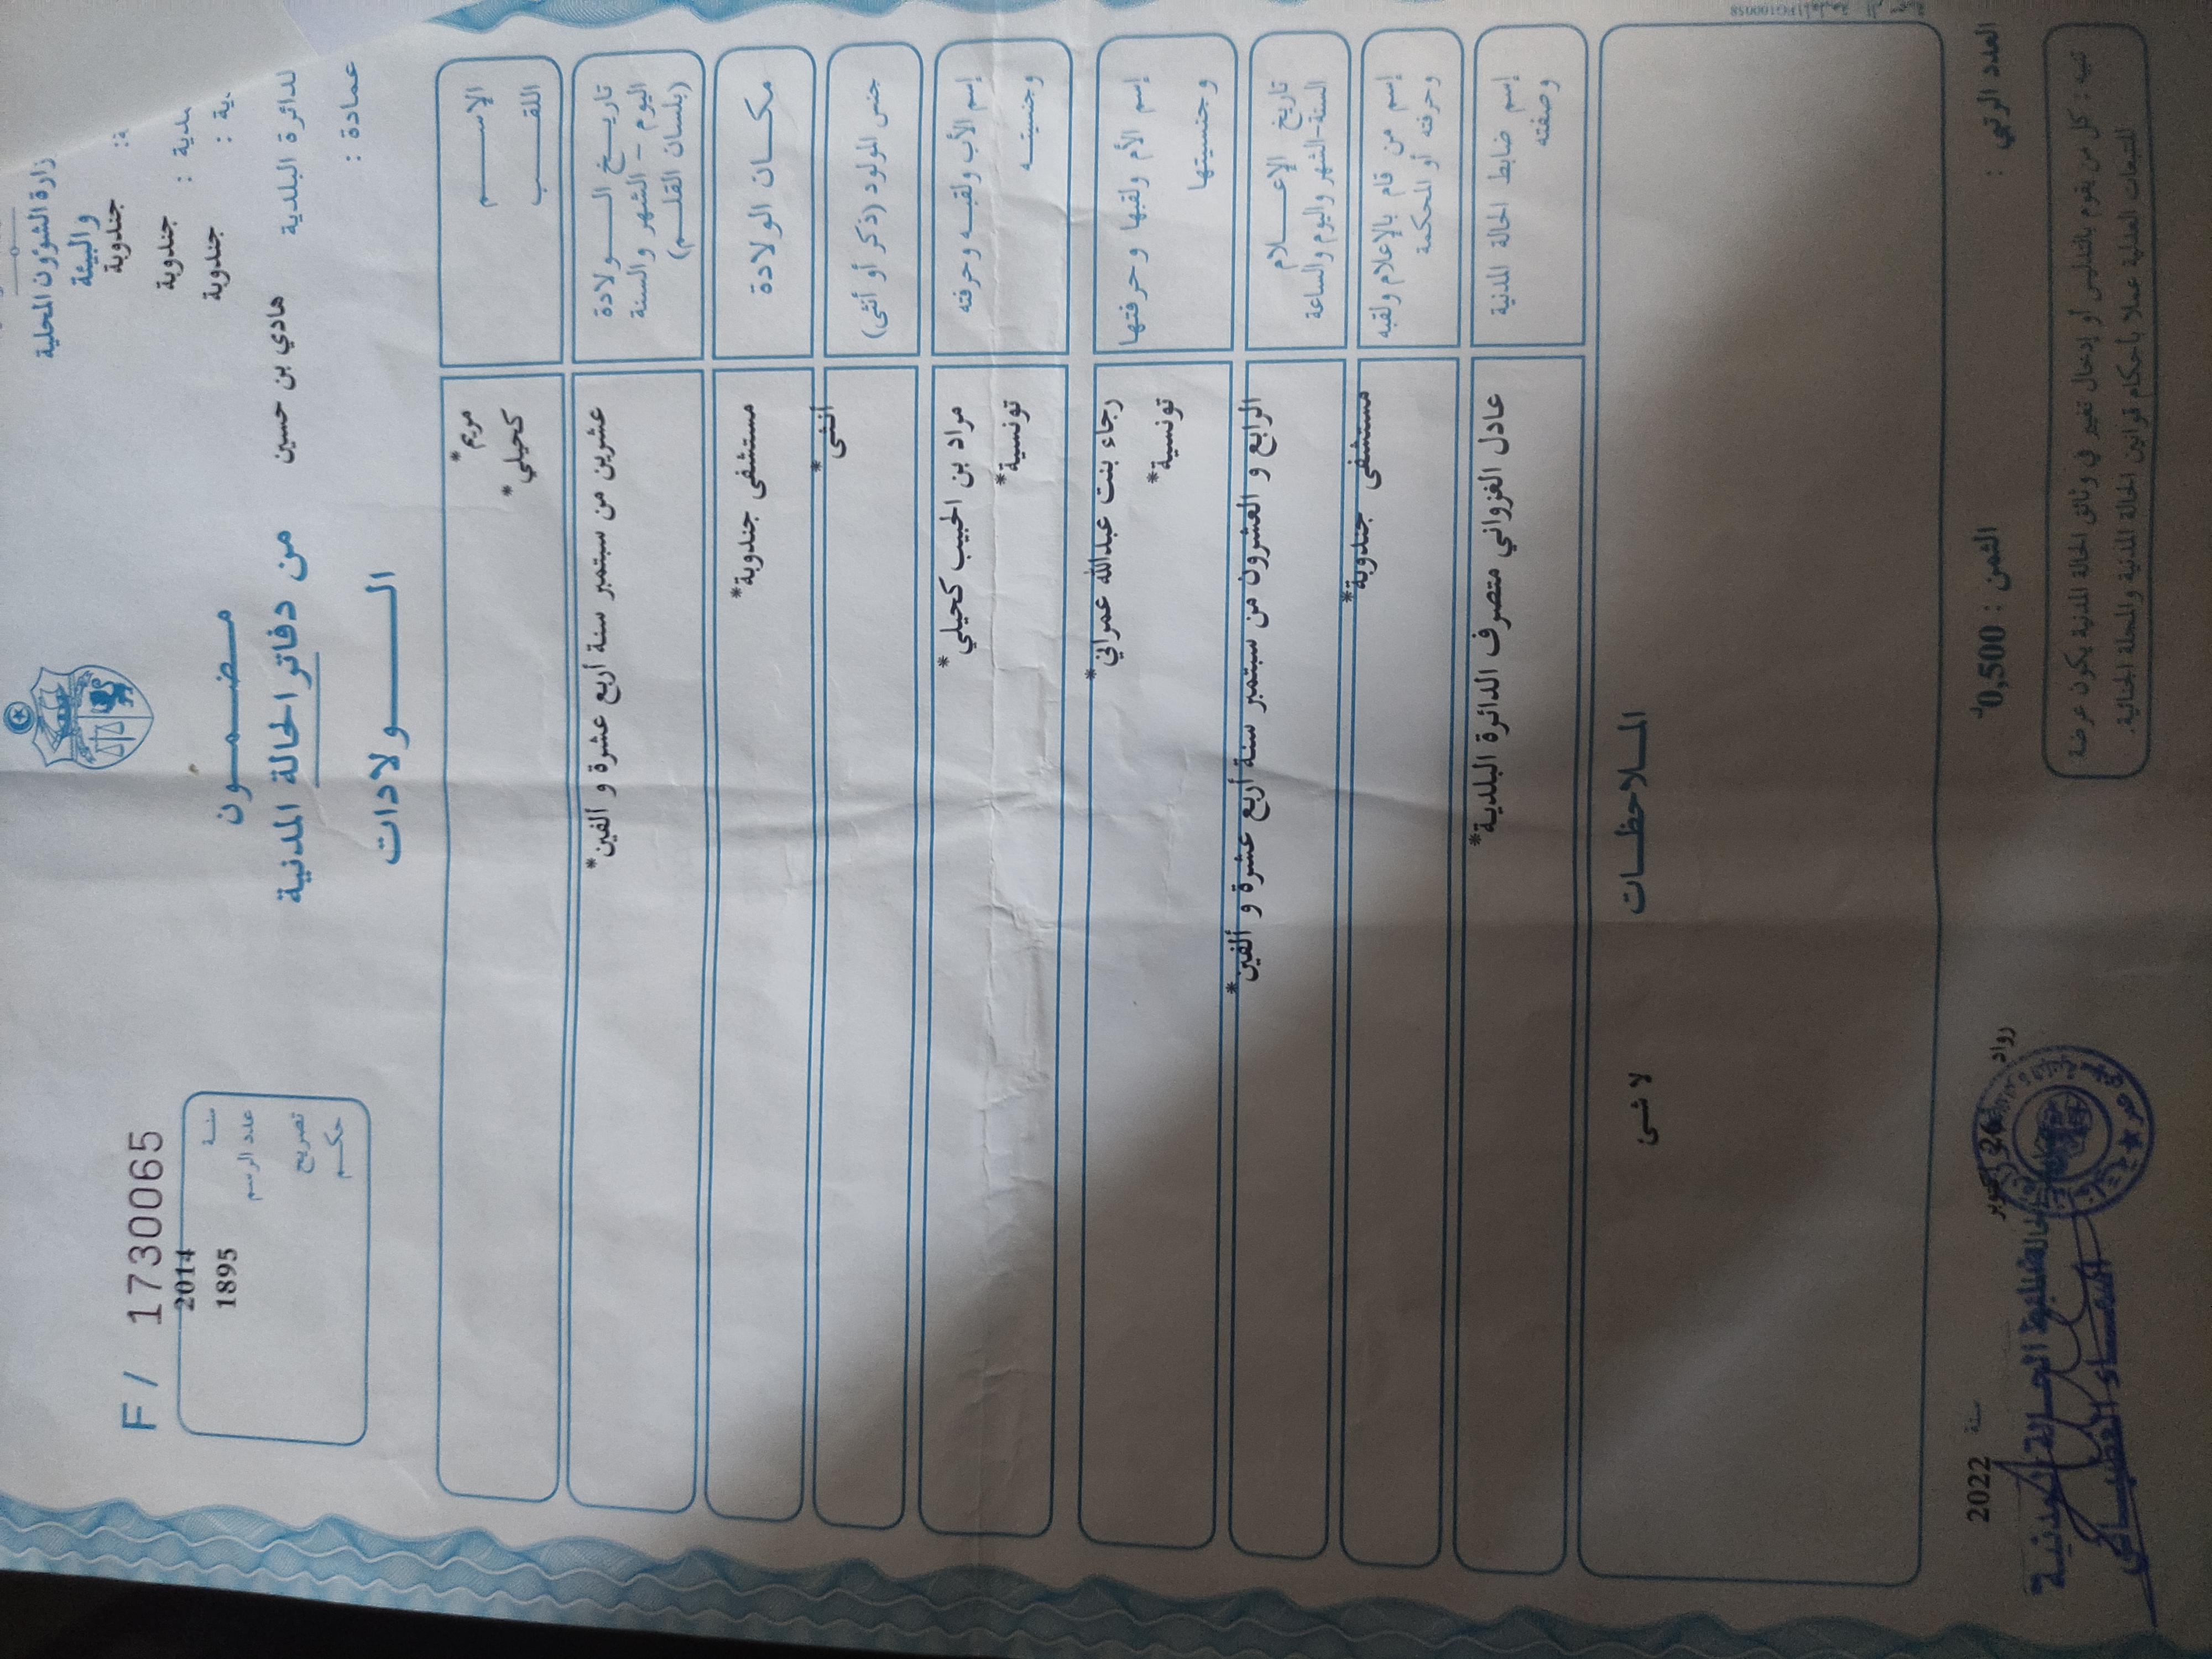 F / 1730065
سنة 2014
عدد الرسم 1895
تصريح
حكم
مضمون
من دفاتر الحالة المدنية
الولادات
وزارة الشؤون المحلية
والبيئة
جندوبة
جندوبة
جندوبة
الدائرة البلدية هادي بن حسين
عمادة :
الإسم مريم*
اللقب كحيلي*
تاريخ الولادة
اليوم – الشهر والسنة
(بلسان القلم)
عشرين من سبتمبر سنة أربع عشرة و ألفين*
مكان الولادة مستشفى جندوبة*
جنس المولود (ذكر أو أنثى) أنثى*
إسم الأب ولقبه وحرفته مراد بن الحبيب كحيلي*
وجنسيته تونسية*
إسم الأم ولقبها وحرفتها رجاء بنت عبدالله عمراني*
وجنسيتها تونسية*
تاريخ الإعلام
السنة-الشهر واليوم والساعة
الرابع و العشرون من سبتمبر سنة أربع عشرة و ألفين*
إسم من قام بالإعلام ولقبه
وحرفته أو المحكمة
مستشفى جندوبة*
إسم ضابط الحالة المدنية
وصفته
عادل الغزواني متصرف الدائرة البلدية*
الملاحظات
لا شئ
العدد الرتبي :
الثمن : 0,500د
رواد
26
سنة 2022
ضابط الحالة المدنية
تنبيه : كل من يقوم بالتدليس أو إدخال تغيير في وثائق الحالة المدنية يكون عرضة
للتبعات العدلية عملا بأحكام قوانين الحالة المدنية والمجلة الجنائية.